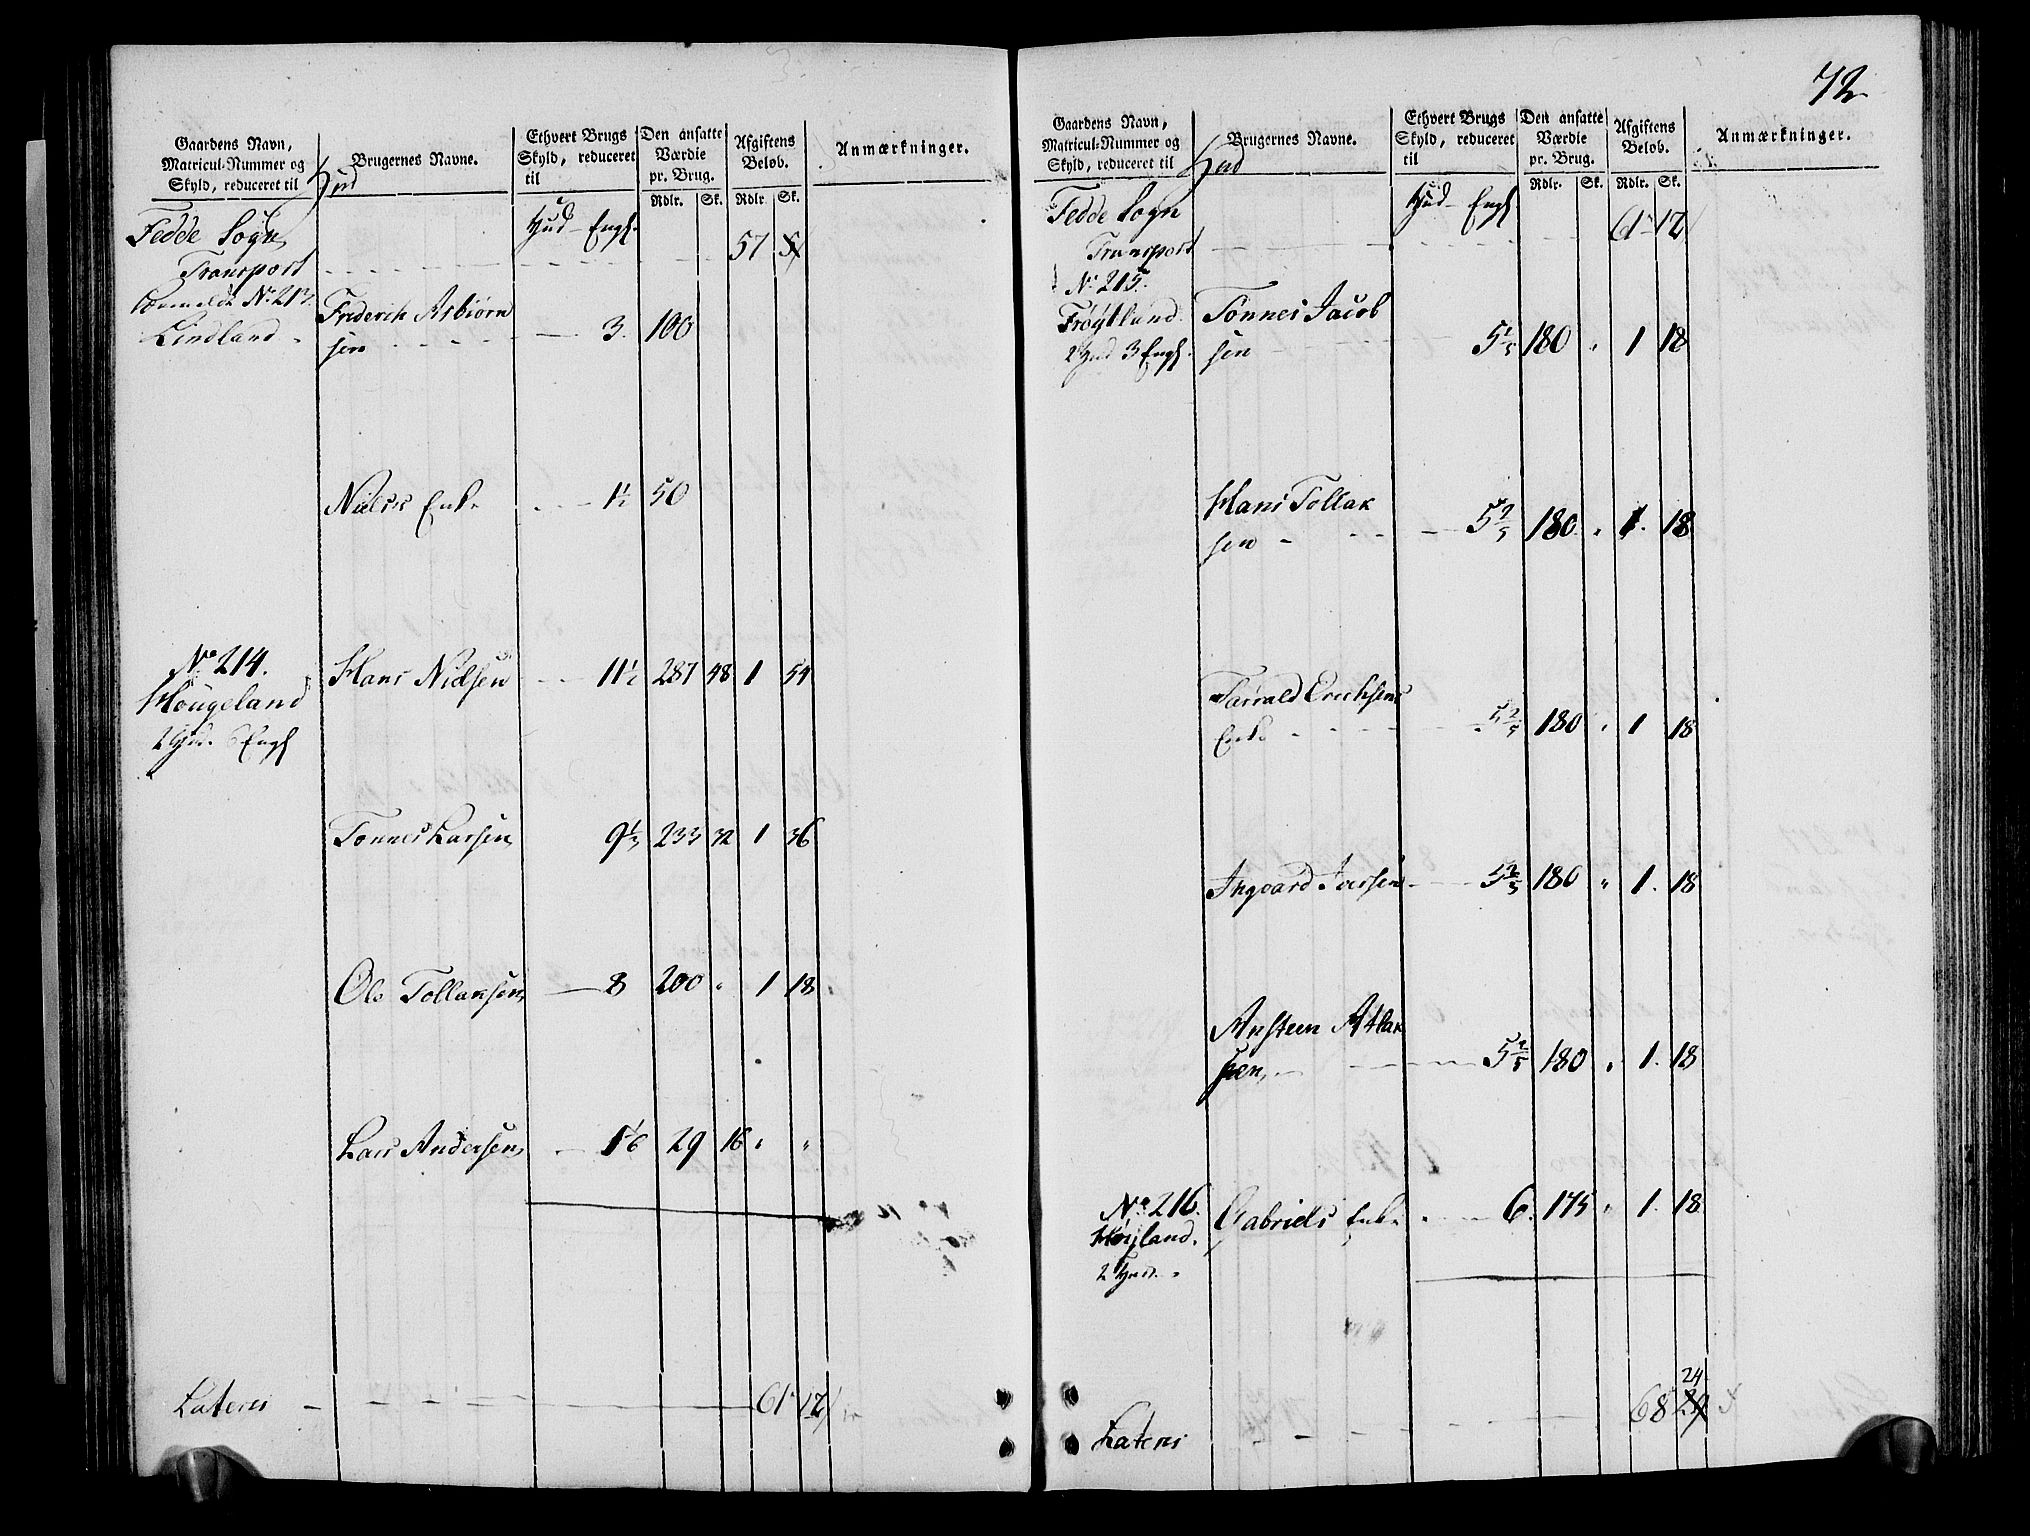 72
Gaardens Navn,
Matricul-Nummer og
Skyld, reduceret til Hud
Brugernes Navne.
Ethvert Brugs
Skyld, reduceret
til
Den ansatte
Værdie
pr. Brug.
Afgiftens
Beløb.
Anmærkninger.
Rdlr. Sk. Rdlr. Sk.
Hud Engl.
Fedde Sogn
Transport 57
No. 213.
Lindland
Friderich Asbiørn
sen 3. 100
Niels's Enke 1½ 50
No. 214.
Hougeland
2 Hud. 6 Engl
Hans Nielsen 11½ 287 48 1 54
Tønnes Larsen 9⅓ 233 32 1 36
Ole Tollaksen 8 200 " 1 18
Lars Andersen 1⅙ 29 16 " "
Lateris 61 12
Gaardens Navn,
Matricul-Nummer og
Skyld, reduceret til Hud
Brugernes Navne.
Ethvert Brugs
Skyld, reduceret
til
Den ansatte
Værdie
pr. Brug.
Afgiftens
Beløb.
Anmærkninger.
Rdlr. Sk. Rdlr. Sk.
Hud Engl
Fedde Sogn
Transport 61 12
No. 215.
Frøytland
2 Hud 3 Engl.
Tønnes Jacob
sen 180 " 1 18
Hans Tollak
sen 5⅖ 180 " 1. 18
Tarrald Erichsens
Enke 5⅖ 180 " 1 18
Ingvard Iversen 5⅖ 180 " 1. 18
Ansteen Atlak
sen 5⅖ 180 " 1. 18
No. 216.
Høyland.
2 Hud.
Gabriels Enke 6. 175 " 1. 18
24
Lateris 68